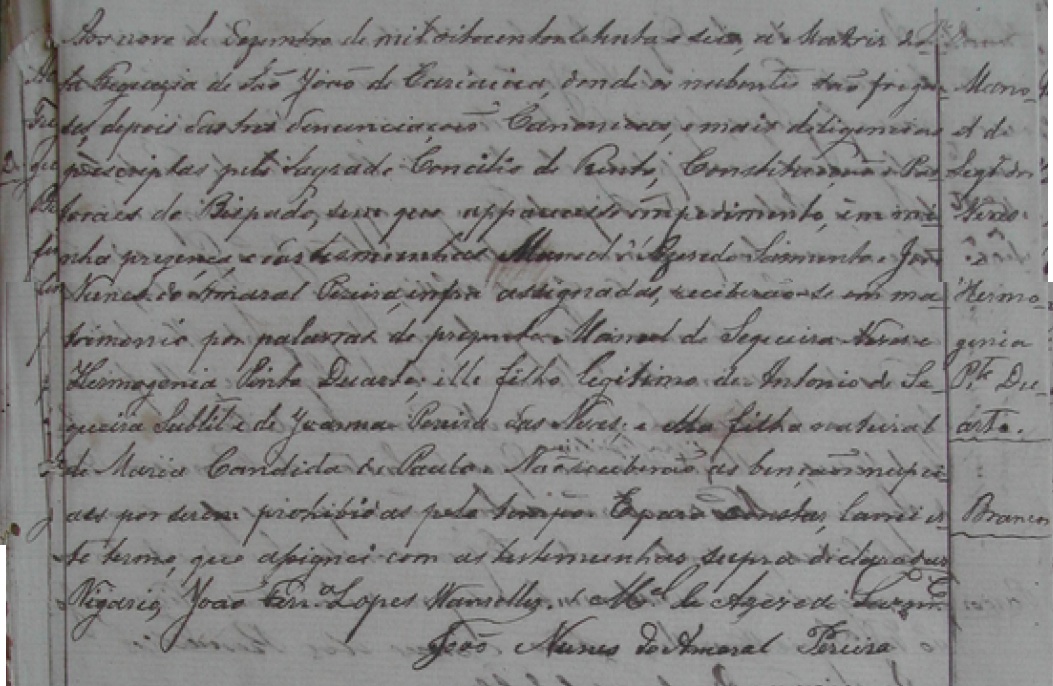 Aos nove de Dezembro de mil oitocentos e tenta e seis, a Matris d
ta Freguezia de São João de Cariacica, donde os nubentes são fregue-
ses, depois das tres denunciações Canonicas, e mais diligencias
prescriptas pelo Sagrado Concilio de Trento, Constituição e Pas-
toraes do Bispado, sem que apparecesse impedimento, em mi-
nha prezença e das tesmunhas Manoel d'Azeredo Sarmento e João
Nunes do Amaral Pereira, infra assignados, receberão-se em ma-
trimonio por palavras de prezente Manoel de Sequeira Neves e
Hermogenia Pinto Duarte; elle filho legitimo de Antonio de Se-
queira Subtil e de Joanna Pereira das Neves; e ella filha natural
de Maria Candida de Paula. Não receberão as bençãos nupci-
aes por serem prohibidas pelo tempo. E para constar, lancei es-
te termo, que assignei com as testemunhas supra declaradas
Vigario, João Ferrª Lopes Wanzeller. Mel de Azeredo
João Nunes do Amaral Pereira
Mano-
el de
Seqrª
Neves
Hermo-
genia
Pto Du-
arte.
Brancos